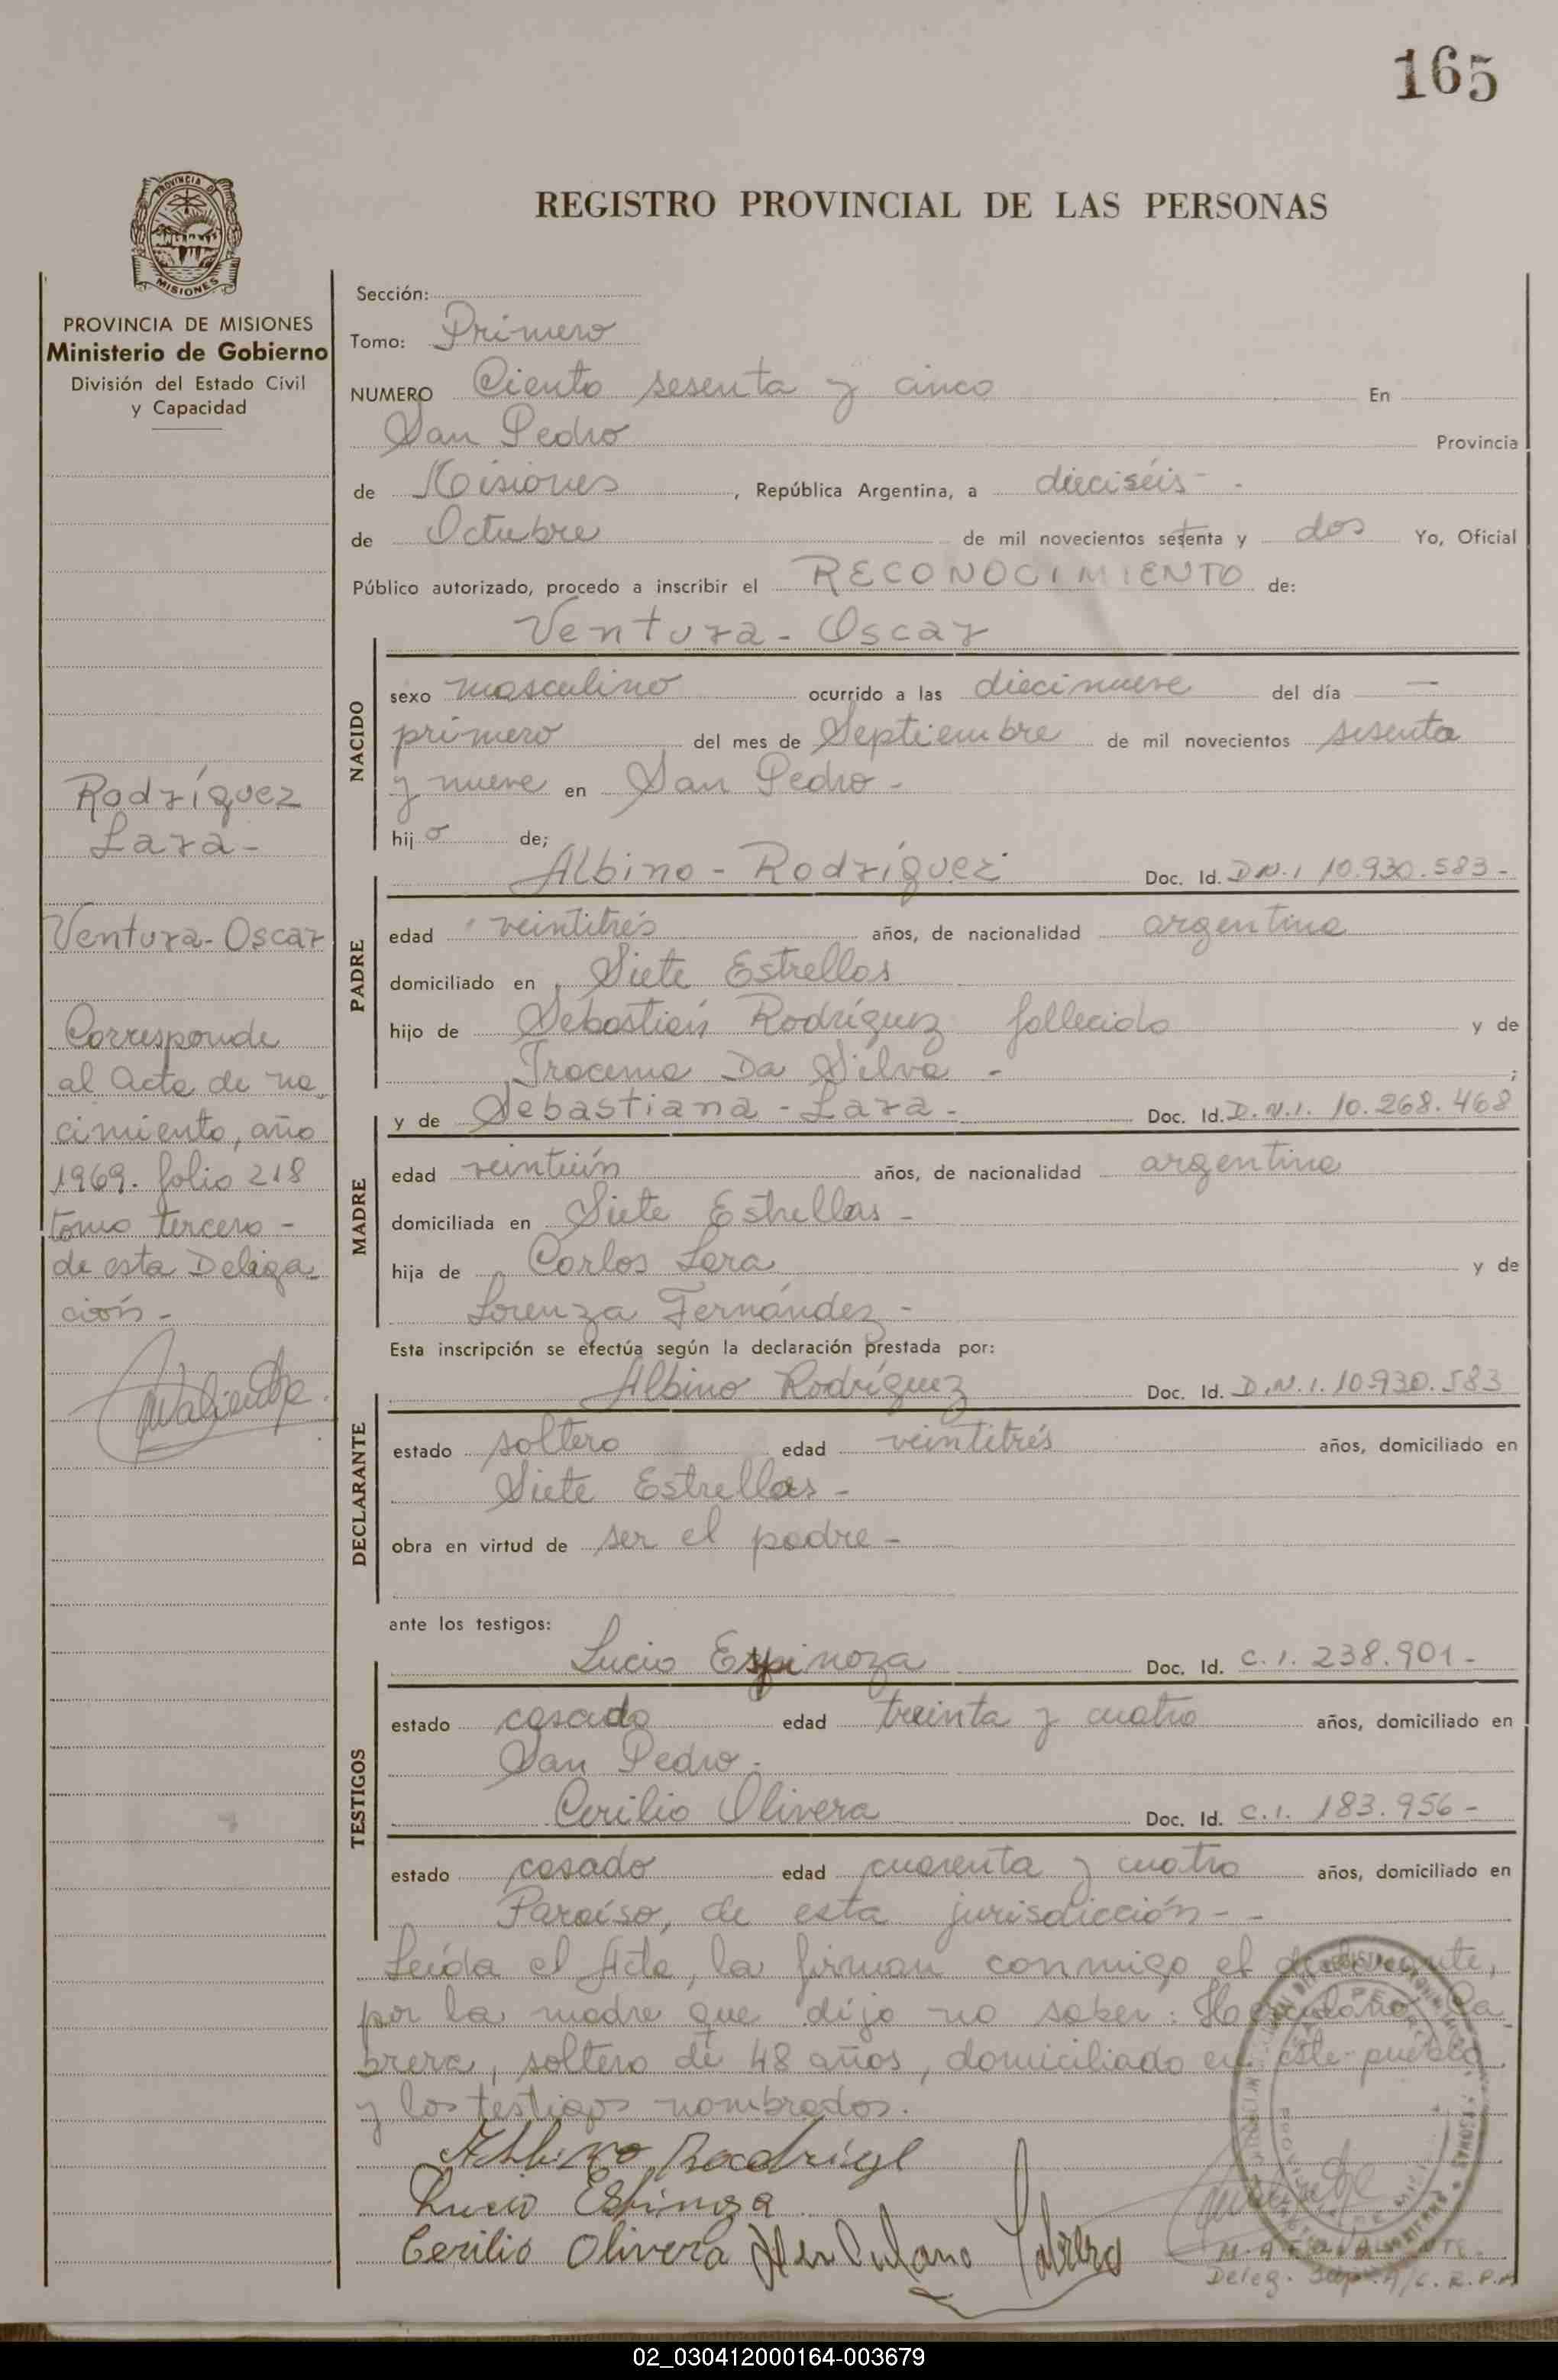 165
PROVINCIA DE
MISIONES
REGISTRO PROVINCIAL DE LAS PERSONAS
PROVINCIA DE MISIONES
Ministerio de Gobierno
División del Estado Civil
y Capacidad
Rodríguez
Lara-
Ventura-Oscar
Corresponde
al Acta de na
cimiento, año
1969. folio 218
tomo tercero-
de esta Delega
ción-
Sección:
Tomo: Primero
NUMERO Ciento sesenta y cinco En
San Pedro Provincia
de Misiones, República Argentina, a dieciséis-
de Octubre de mil novecientos setenta y dos Yo, Oficial
Público autorizado, procedo a inscribir el RECONOCIMIENTO de:
Ventura-Oscar
NACIDO
sexo masculino ocurrido a las diecinueve del día —
primero del mes de Septiembre de mil novecientos sesenta
y nueve en San Pedro-
hijo de;
Albino-Rodríguez Doc. Id. D.N.I 10.930.583-
PADRE
edad veintitrés años, de nacionalidad argentina
domiciliado en Siete Estrellas
hijo de Sebastián Rodríguez fallecido y de
Iracema Da Silva - ;
y de Sebastiana-Lara- Doc. Id. D.N.I. 10.268.468
MADRE
edad veintiún años, de nacionalidad argentina
domiciliada en Siete Estrellas-
hija de Carlos Lara y de
Lorenza Fernández-
Esta inscripción se efectúa según la declaración prestada por:
Albino Rodríguez Doc. Id. D.N.I. 10.930.583
DECLARANTE
estado soltero edad veintitrés años, domiciliado en
Siete Estrellas-
obra en virtud de ser el padre-
ante los testigos:
Lucio Espinoza Doc. Id. C.I. 238.901-
TESTIGOS
estado casado edad treinta y cuatro años, domiciliado en
San Pedro.
Cerilio Olivera Doc. Id. C.I. 183.956-
estado casado edad cuarenta y cuatro años, domiciliado en
Paraíso, de esta jurisdicción--
Leída el Acta, la firman conmigo el declarante,
por la madre que dijo no saber: Herculano Ca
brera, soltero de 48 años, domiciliado en este pueblo
y los testigos nombrados.
Albino Rodrige
Lucio Espinoza
Cerilio Olivera Herculano Cabrera
02_030412000164-003679